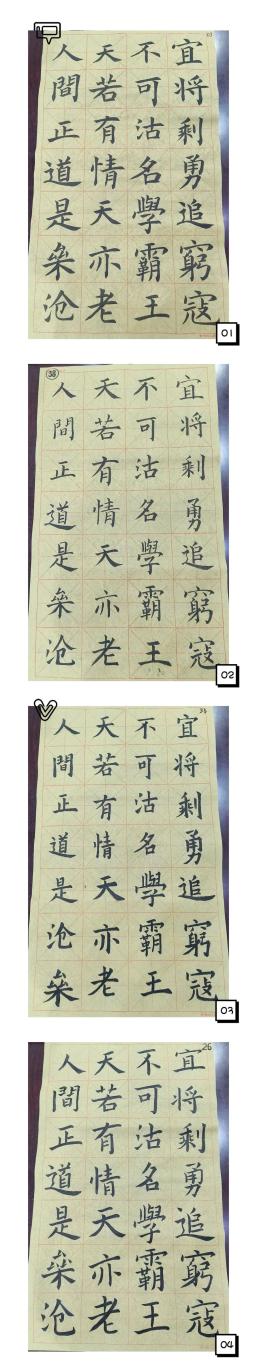 宜将剩勇追窮寇
不可沽名學霸王
天若有情天亦老
人間正道是桒沧
01
38
宜将剩勇追窮寇
不可沽名學霸王
天若有情天亦老
人間正道是桒沧
02
宜将剩勇追窮寇
不可沽名學霸王
天若有情天亦老
人間正道是沧桒
03
26
宜将剩勇追窮寇
不可沽名學霸王
天若有情天亦老
人間正道是桒沧
04